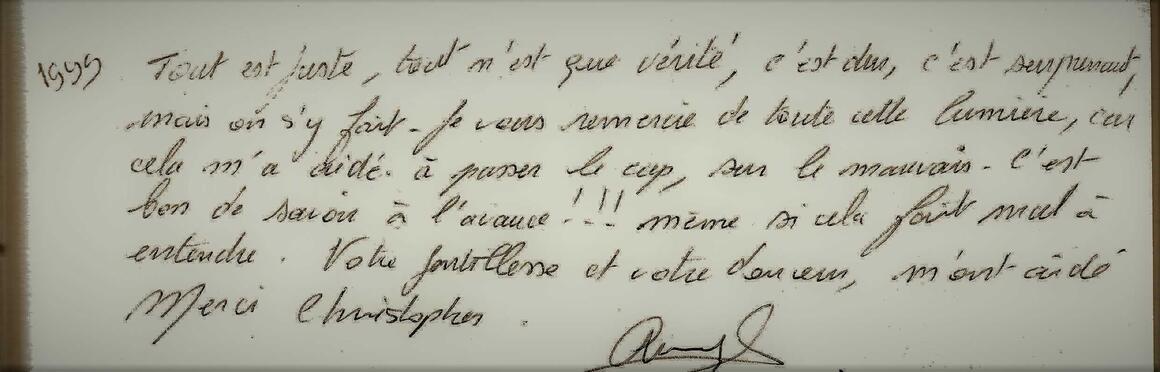 1999 Tout est juste, tout n'est que vérité, c'est dur, c'est surprenant,
mais on s'y fait. Je vous remercie de toute cette lumière, car
cela m'a aidé à passer le cap, sur le mauvais. C'est
bon de savoir à l'avance !!! même si cela fait mal à
entendre. Votre gentillesse et votre douceur, m'ont aidé
Merci Christopher.